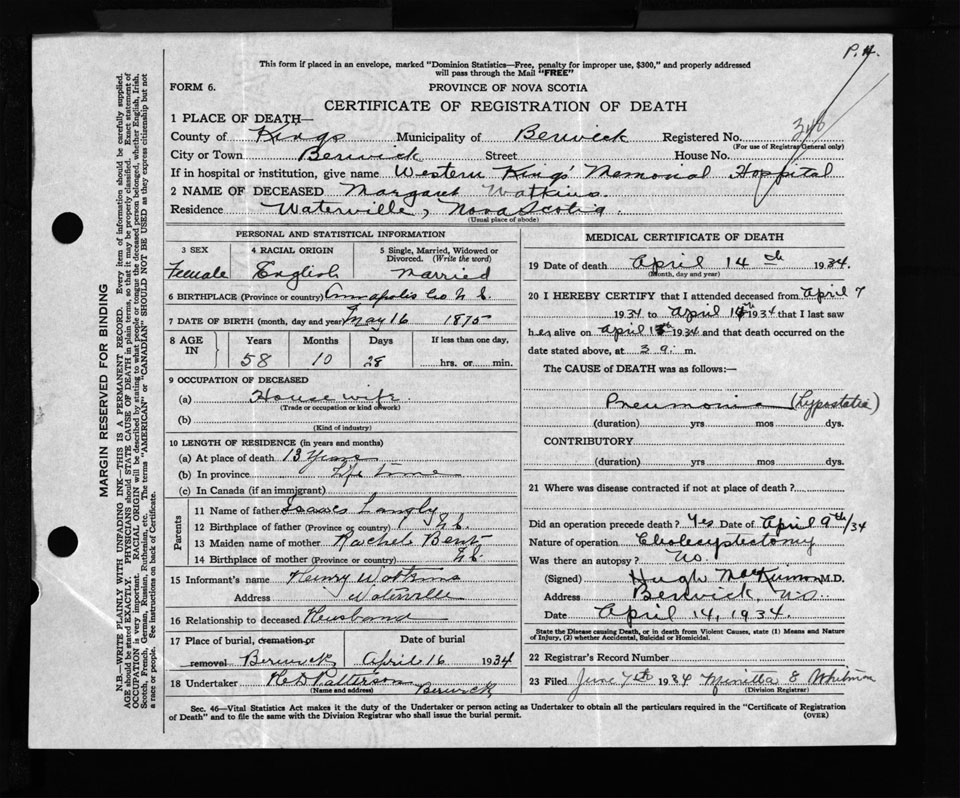 P.H.
This form if placed in an envelope, marked "Dominion Statistics—Free, penalty for improper use, $300," and properly addressed
will pass through the Mail "FREE"
FORM 6.
PROVINCE OF NOVA SCOTIA
CERTIFICATE OF REGISTRATION OF DEATH
1 PLACE OF DEATH—
County of Kings Municipality of Berwick Registered No. 346
(For use of Registrar General only)
City or Town Berwick Street House No.
If in hospital or institution, give name Western Kings Memorial Hospital
2 NAME OF DECEASED Margaret Watkins
Residence Waterville, Nova Scotia.
(Usual place of abode)
PERSONAL AND STATISTICAL INFORMATION
3 SEX 4 RACIAL ORIGIN 5 Single, Married, Widowed or Divorced. (Write the word)
Female English Married
6 BIRTHPLACE (Province or country) Annapolis Co N.S.
7 DATE OF BIRTH (month, day and year) May 16 1875
8 AGE IN Years Months Days If less than one day,
58 10 28 hrs. or min.
9 OCCUPATION OF DECEASED
(a) House wife.
(Trade or occupation or kind of work)
(b)
(Kind of industry)
10 LENGTH OF RESIDENCE (in years and months)
(a) At place of death 13 Years
(b) In province Life time
(c) In Canada (if an immigrant)
Parents
11 Name of father Isaacs Langly
12 Birthplace of father (Province or country) N.S.
13 Maiden name of mother Rachel Bent
14 Birthplace of mother (Province or country) N.S.
15 Informant's name Henry Watkins
Address Waterville
16 Relationship to deceased Husband
17 Place of burial, cremation or removal Date of burial
Berwick April 16 1934
18 Undertaker H D Patterson Berwick
(Name and address)
MEDICAL CERTIFICATE OF DEATH
19 Date of death April 14th 1934.
(Month, day and year)
20 I HEREBY CERTIFY that I attended deceased from April 7
1934 to April 14th 1934 that I last saw
her alive on April 1934 and that death occurred on
date stated above, at 3 a. m.
The CAUSE of DEATH was as follows:—
Pneumonia (hypostatic)
(duration) yrs mos dys.
CONTRIBUTORY
(duration) yrs mos dys.
21 Where was disease contracted if not at place of death?
Did an operation precede death? Yes Date of April 9th/34
Nature of operation Cholecystectomy
Was there an autopsy? No
(Signed) Hugh MacKinnon M.D.
Address Berwick, N.S.
Date April 14, 1934.
State the Disease causing Death, or in death from Violent Causes, state (1) Means and Nature
of Injury, (2) whether Accidental, Suicidal or Homicidal.
22 Registrar's Record Number
23 Filed June 7th 1934 E Whitman
(Division Registrar)
Sec. 46—Vital Statistics Act makes it the duty of the Undertaker or person acting as Undertaker to obtain all the particulars required in the "Certificate of Registration
of Death" and to file the same with the Division Registrar who shall issue the burial permit.
(OVER)
MARGIN RESERVED FOR BINDING
N.B.—WRITE PLAINLY WITH UNFADING INK—THIS IS A PERMANENT RECORD. Every item of information should be carefully supplied.
AGE should be stated EXACTLY. PHYSICIANS should STATE CAUSE OF DEATH in plain terms, so that it may be properly classified. Exact statement of
OCCUPATION is very important. RACIAL ORIGIN will be described by stating to what people or tongue the deceased person belonged, whether English, Irish,
Scotch, French, German, Russian, Ruthenian, etc. The terms "AMERICAN" or "CANADIAN" SHOULD NOT BE USED as they express citizenship but not
a race or people. See instructions on back of Certificate.